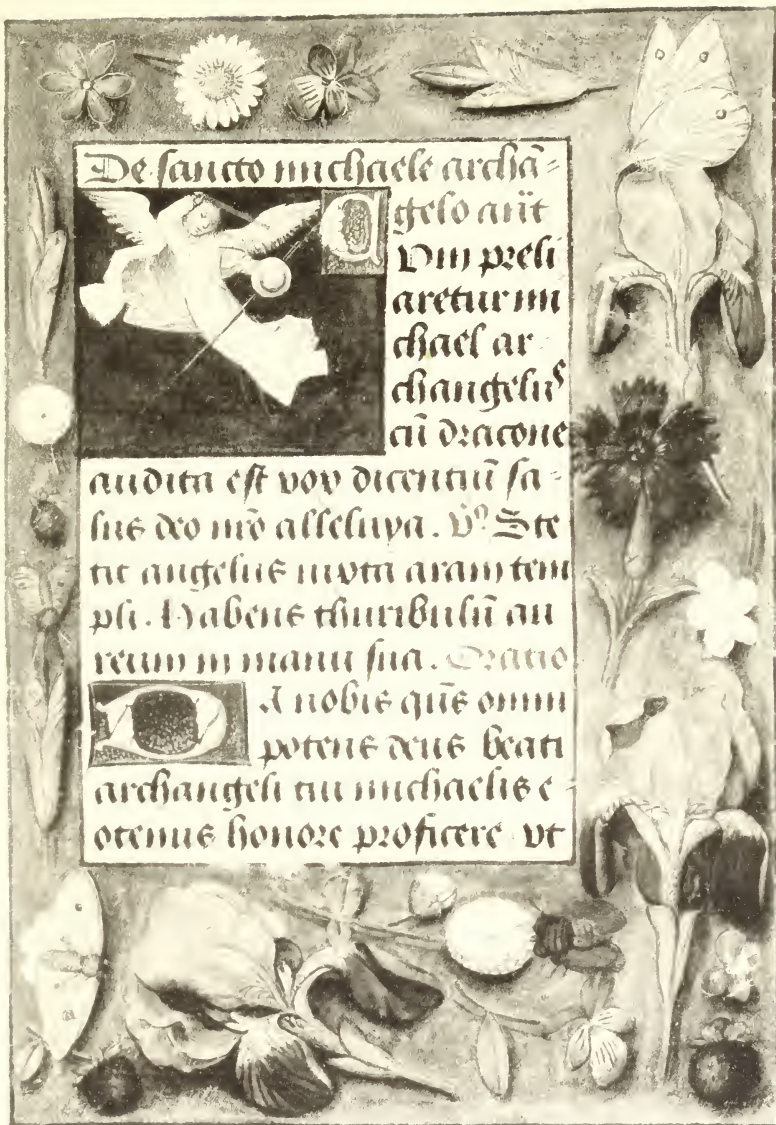 De sancto michaele archā=
gelo añt
Dum preli
aretur mi
chael ar
changelus
cū dracone
audita est vox dicentiū sa-
lus deo nr̄o alleluya. V̊. Ste
tit angelus iuxta aram tem
pli. Habens thuribulū au
reum in manu sua. Oratio
DA nobis qūs omni
potens deus beati
archangeli tui michaelis e-
otenus honore proficere vt